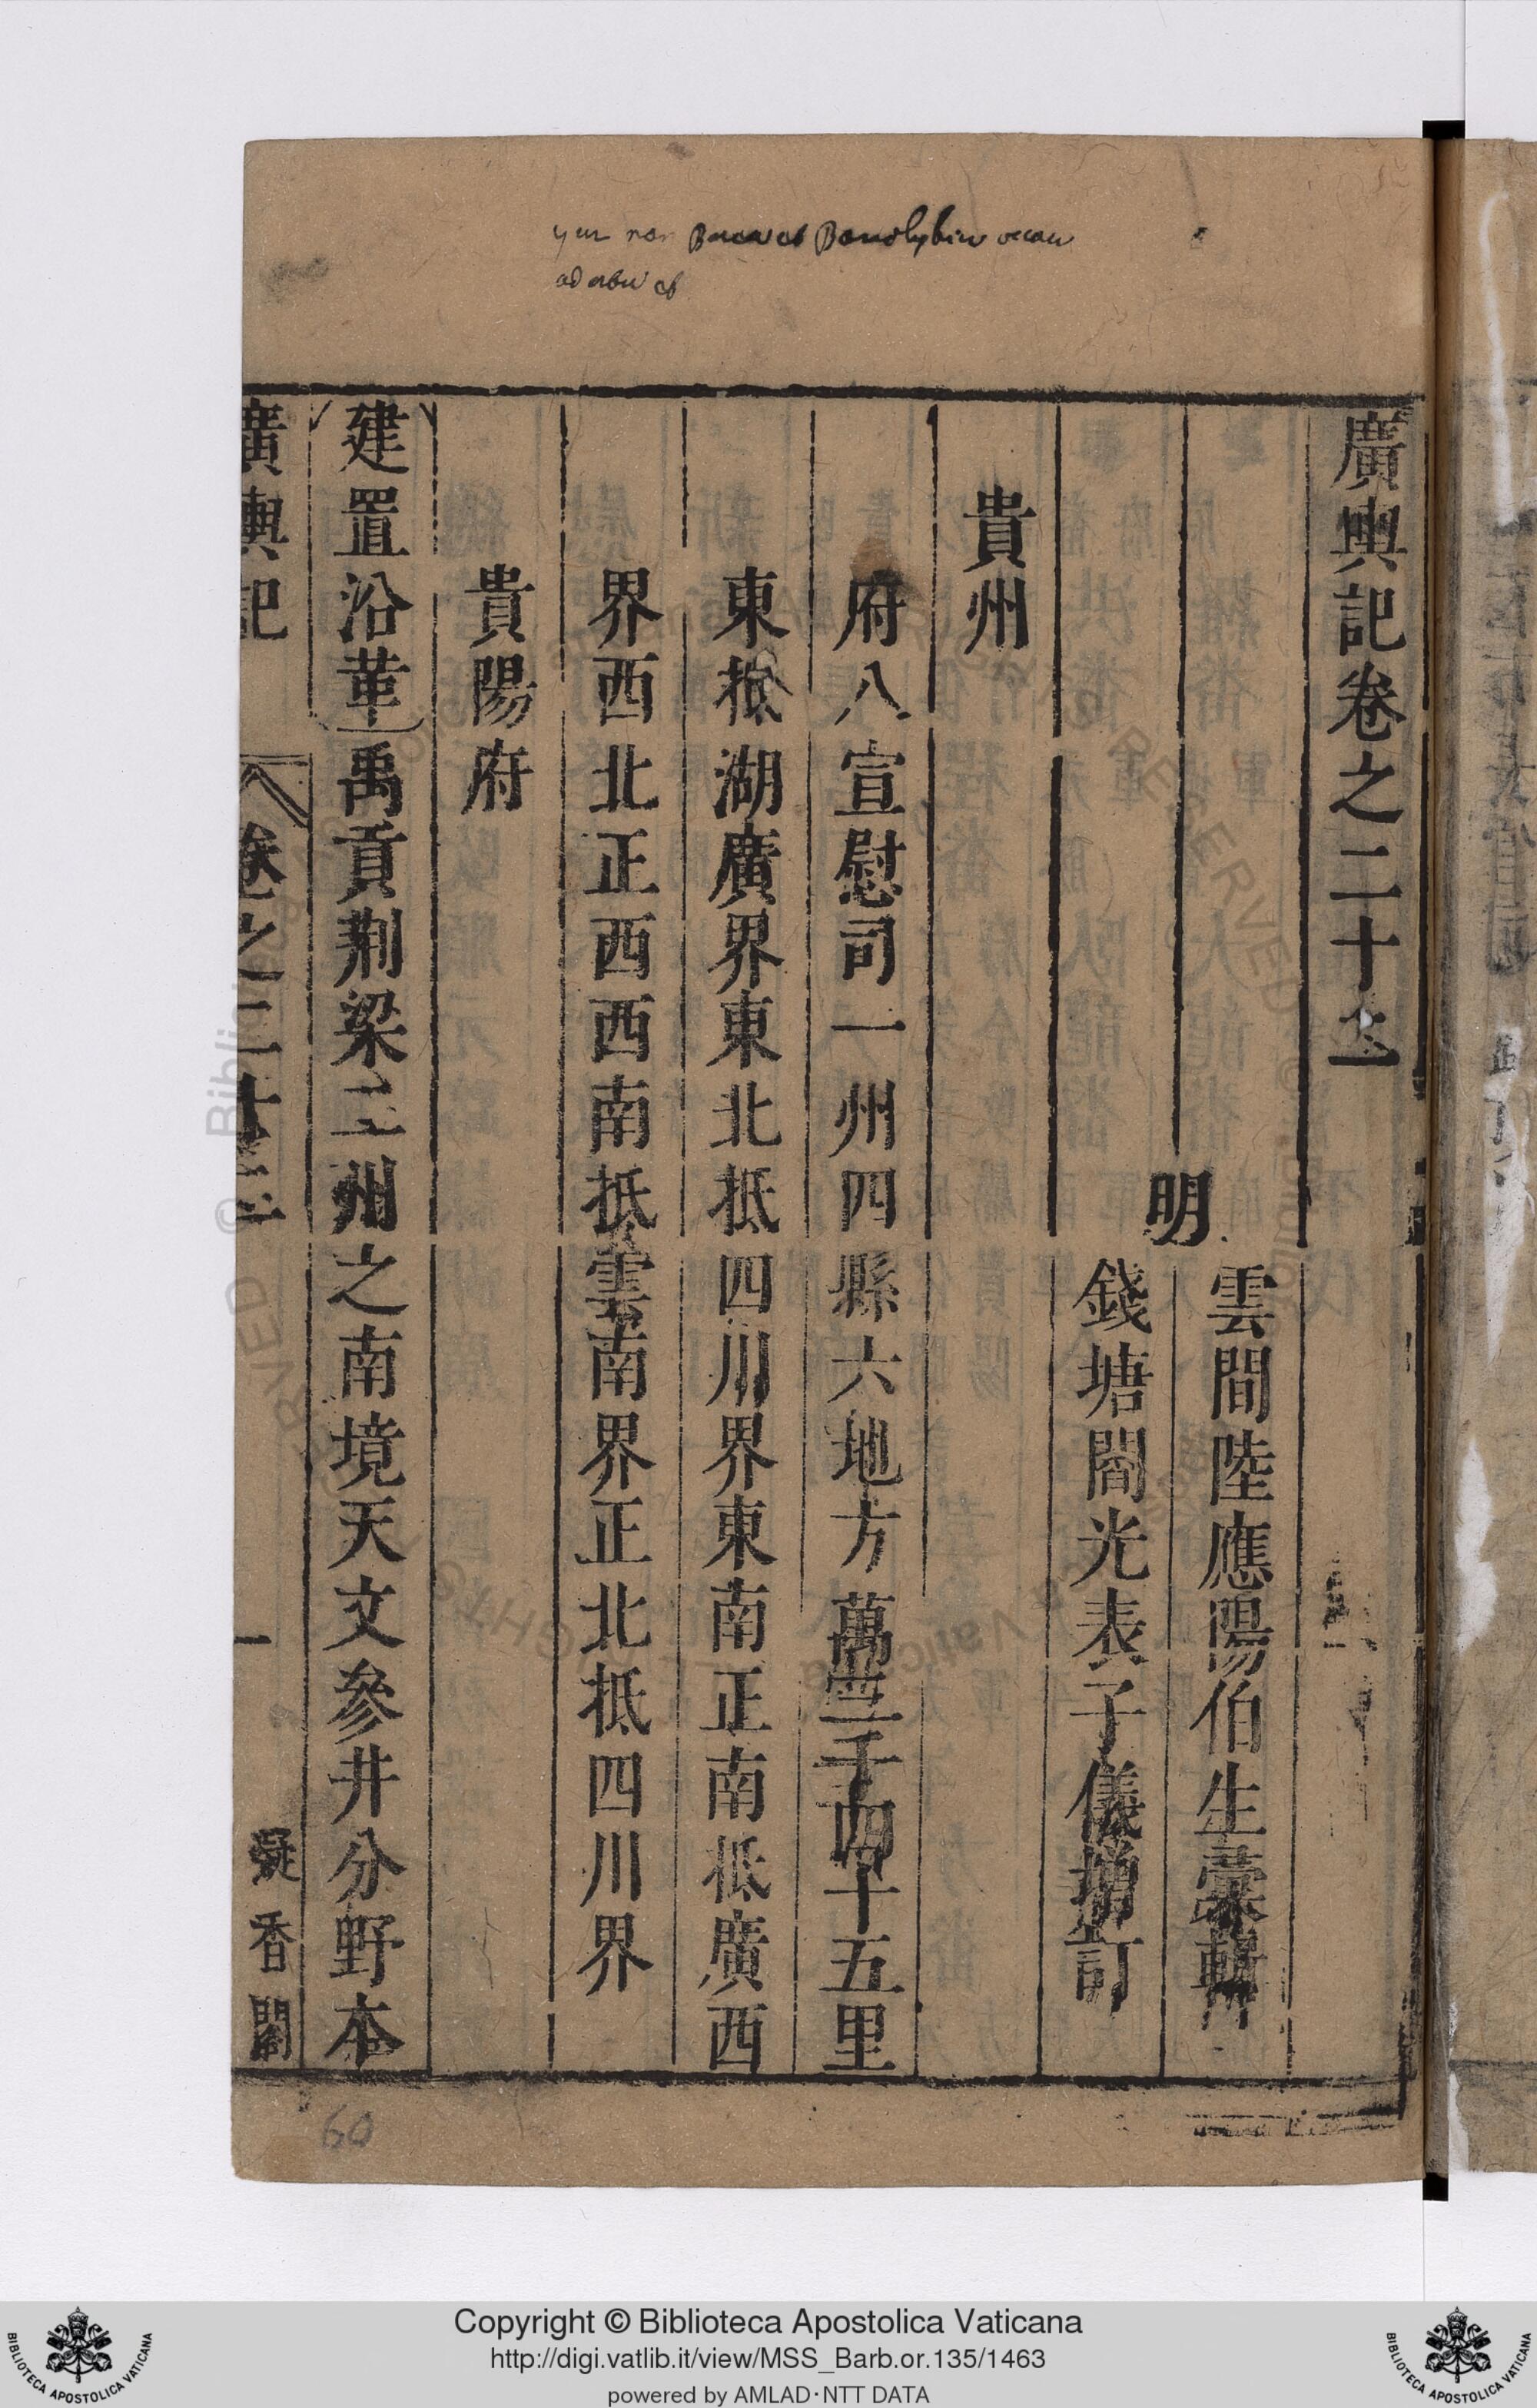 廣輿記卷之二十二
明
雲間陸應陽伯生彚輯
錢塘閻光表子儀增訂
貴州
府八宣慰司一州四縣六地方萬四千四十五里
東抵湖廣界東北抵四川界東南正南抵廣西
界西北正西西南抵雲南界正北抵四川界
貴陽府
建置沿革禹貢荆梁二州之南境天文參井分野本
廣輿記 卷之二十二 一 凝香閣
60
Copyright © Biblioteca Apostolica Vaticana
http://digi.vatlib.it/view/MSS_Barb.or.135/1463
powered by AMLAD·NTT DATA
BIBLIOTECA APOSTOLICA VATICANA
BIBLIOTECA APOSTOLICA VATICANA